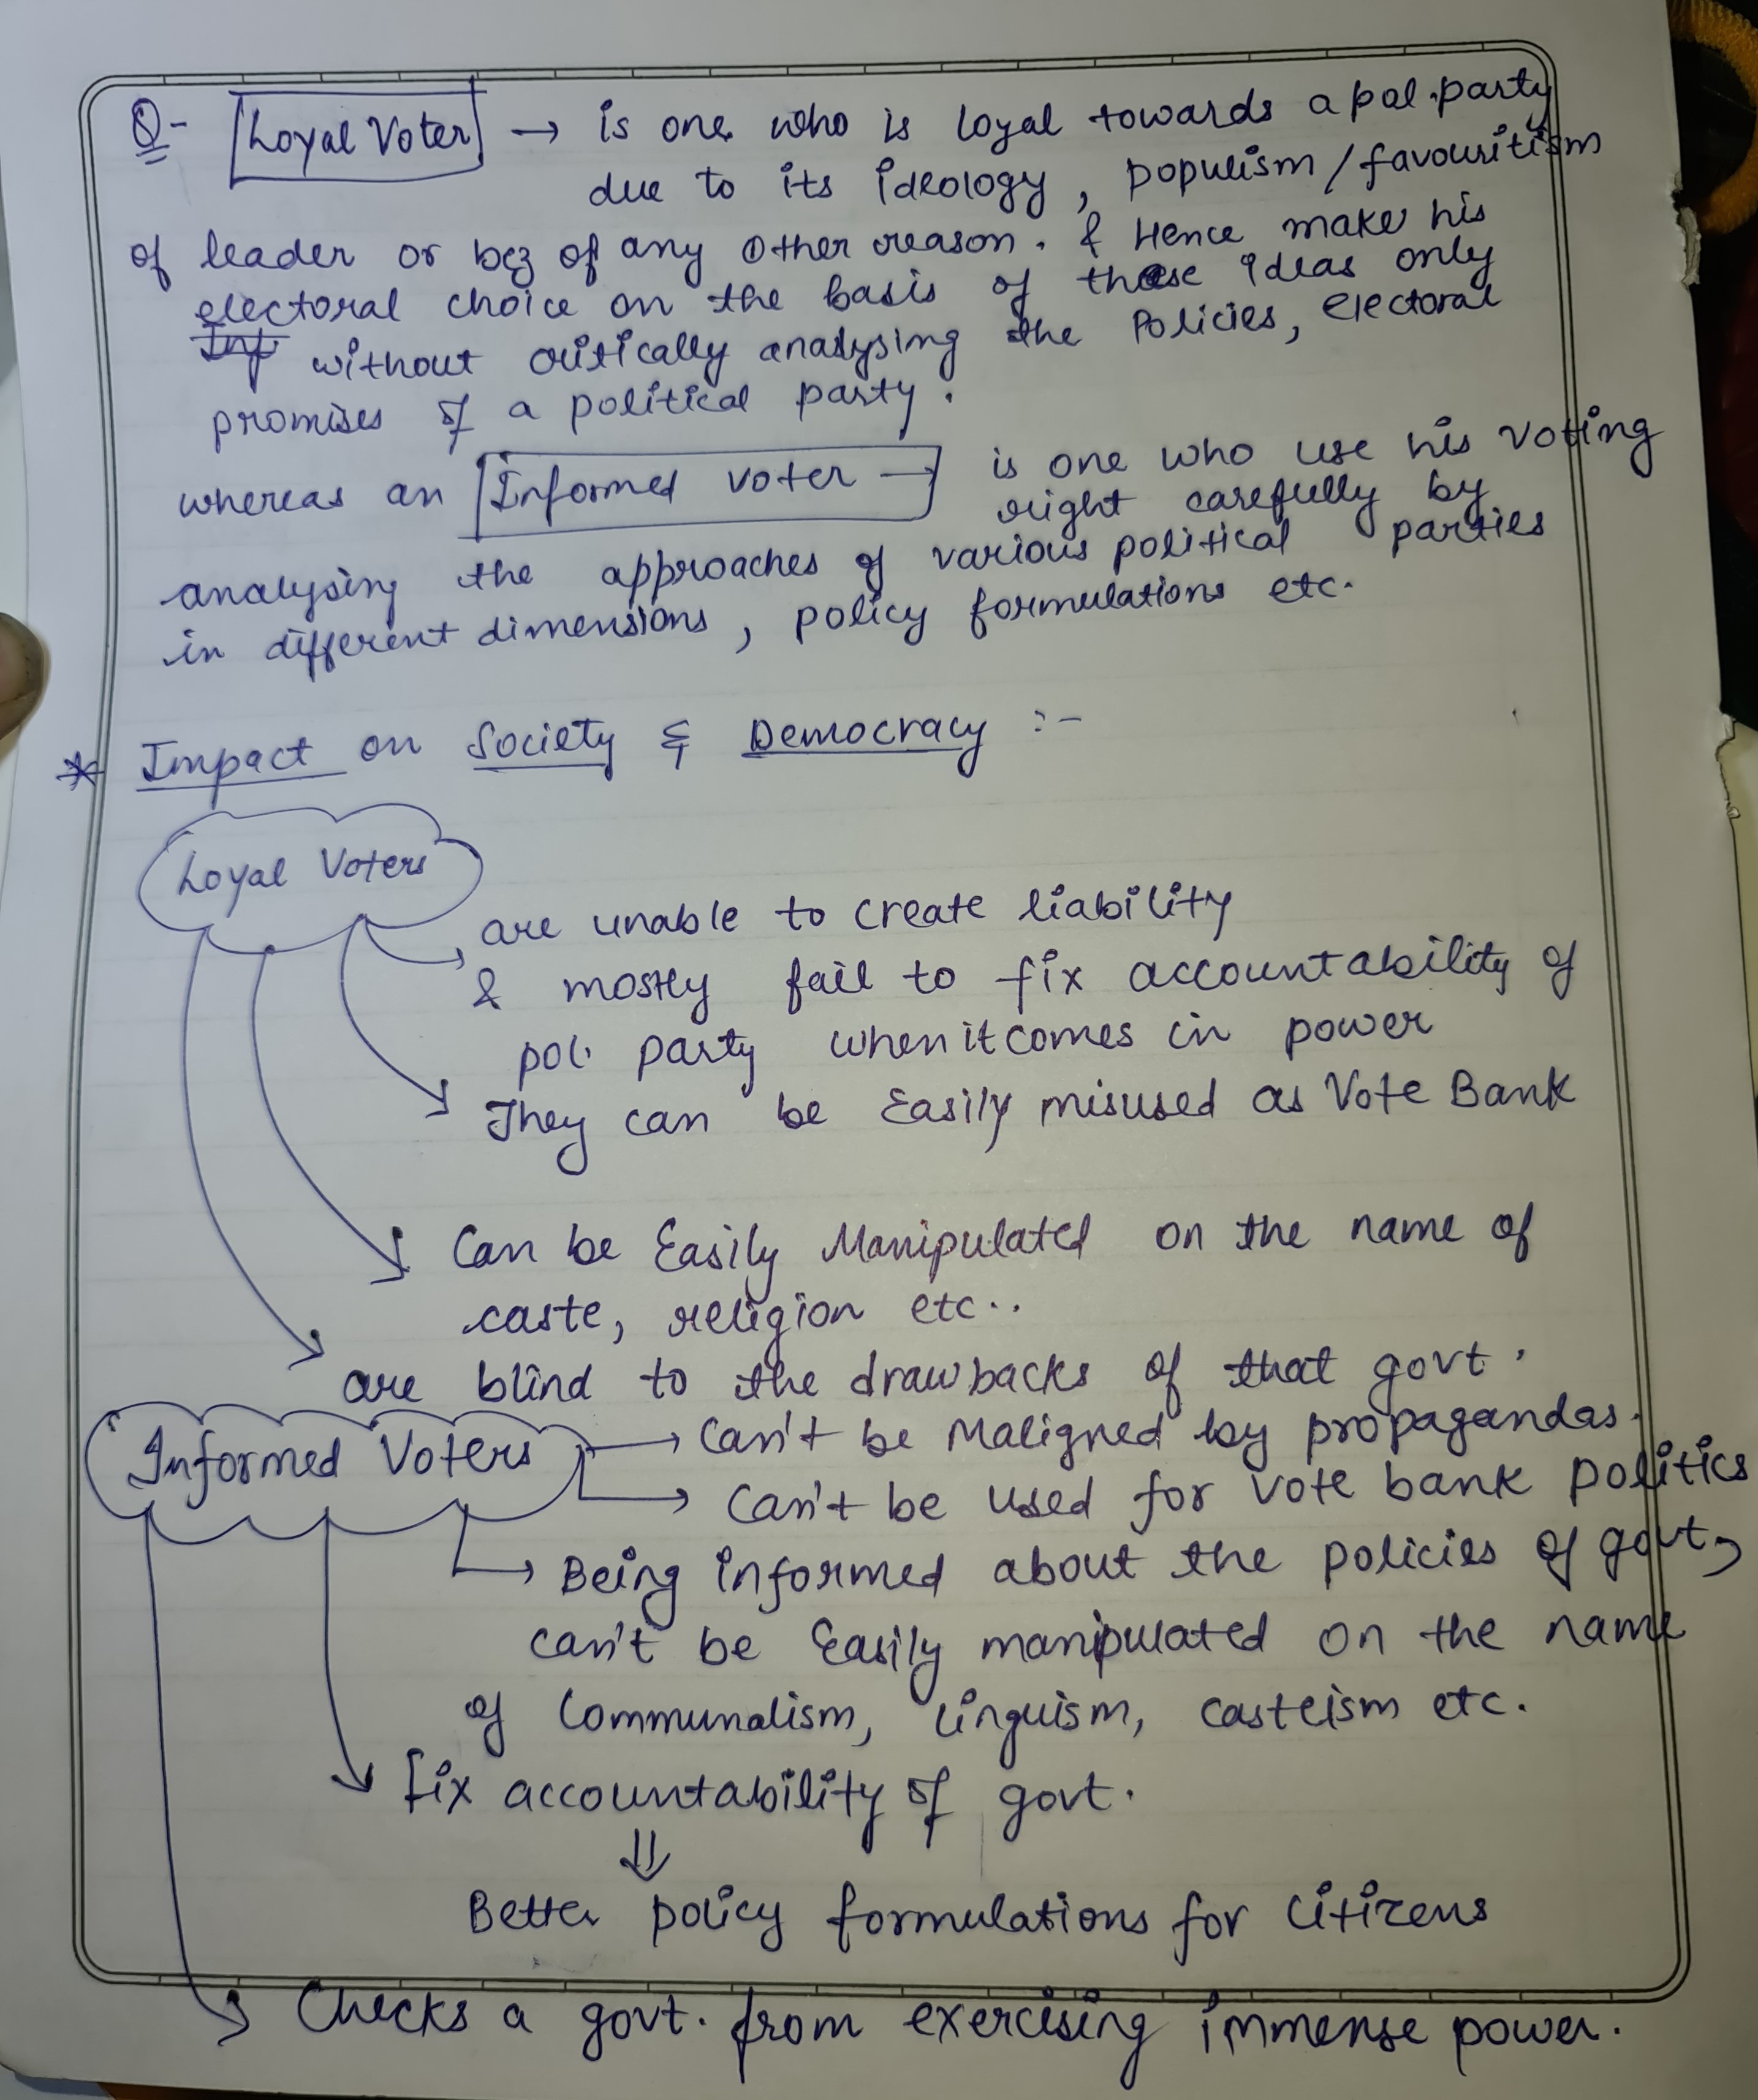 Q- Loyal Voter → is one who is loyal towards a pol. party
due to its ideology, populism/favouritism
of leader or bcz of any other reason. & Hence make his
electoral choice on the basis of these ideas only
without critically analysing the Policies, electoral
promises of a political party.
whereas an Informed voter → is one who use his voting
right carefully by
analysing the approaches of various political parties
in different dimensions, policy formulations etc.
* Impact on Society & Democracy :-
Loyal Voters
are unable to create liability
& mostly fail to fix accountability of
pol. party when it comes in power
They can be Easily misused as Vote Bank
Can be Easily Manipulated on the name of
caste, religion etc..
are blind to the drawbacks of that govt.
Informed Voters → Can't be Maligned by propagandas.
→ Can't be used for vote bank politics
→ Being informed about the policies of govt,
can't be Easily manipulated on the name
of Communalism, linguism, casteism etc.
Fix accountability of govt.
⇓
Better policy formulations for Citizens
Checks a govt. from exercising immense power.